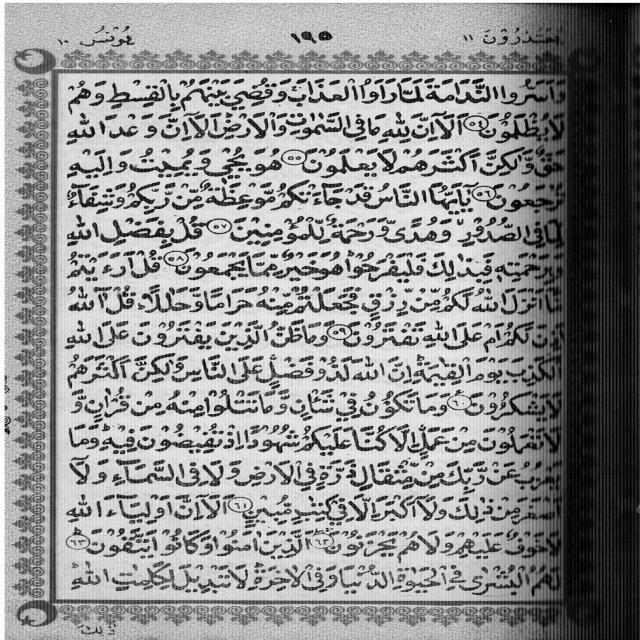 يعتذرون ١١ ١٩٥ يونس ١٠
وَاَسَرُّوا النَّدَامَةَ لَمَّا رَاَوُا الْعَذَابَ وَقُضِيَ بَيْنَهُمْ بِالْقِسْطِ وَهُمْ
لَا يُظْلَمُوْنَ ﴿٥٤﴾ اَلَآ اِنَّ لِلّٰهِ مَا فِي السَّمٰوٰتِ وَالْاَرْضِ اَلَآ اِنَّ وَعْدَ اللّٰهِ
حَقٌّ وَّلٰكِنَّ اَكْثَرَهُمْ لَا يَعْلَمُوْنَ ﴿٥٥﴾ هُوَ يُحْيٖ وَيُمِيْتُ وَاِلَيْهِ
تُرْجَعُوْنَ ﴿٥٦﴾ يٰٓاَيُّهَا النَّاسُ قَدْ جَآءَتْكُمْ مَّوْعِظَةٌ مِّنْ رَّبِّكُمْ وَشِفَآءٌ
لِّمَا فِي الصُّدُوْرِ وَهُدًى وَّرَحْمَةٌ لِّلْمُؤْمِنِيْنَ ﴿٥٧﴾ قُلْ بِفَضْلِ اللّٰهِ
وَبِرَحْمَتِهٖ فَبِذٰلِكَ فَلْيَفْرَحُوْا هُوَ خَيْرٌ مِّمَّا يَجْمَعُوْنَ ﴿٥٨﴾ قُلْ اَرَءَيْتُمْ
مَّآ اَنْزَلَ اللّٰهُ لَكُمْ مِّنْ رِّزْقٍ فَجَعَلْتُمْ مِّنْهُ حَرَامًا وَّحَلٰلًا قُلْ آٰللّٰهُ
اَذِنَ لَكُمْ اَمْ عَلَى اللّٰهِ تَفْتَرُوْنَ ﴿٥٩﴾ وَمَا ظَنُّ الَّذِيْنَ يَفْتَرُوْنَ عَلَى اللّٰهِ
الْكَذِبَ يَوْمَ الْقِيٰمَةِ اِنَّ اللّٰهَ لَذُوْ فَضْلٍ عَلَى النَّاسِ وَلٰكِنَّ اَكْثَرَهُمْ
لَا يَشْكُرُوْنَ ﴿٦٠﴾ وَمَا تَكُوْنُ فِيْ شَاْنٍ وَّمَا تَتْلُوْا مِنْهُ مِنْ قُرْاٰنٍ وَّ
لَا تَعْمَلُوْنَ مِنْ عَمَلٍ اِلَّا كُنَّا عَلَيْكُمْ شُهُوْدًا اِذْ تُفِيْضُوْنَ فِيْهِ وَمَا
يَعْزُبُ عَنْ رَّبِّكَ مِنْ مِّثْقَالِ ذَرَّةٍ فِي الْاَرْضِ وَلَا فِي السَّمَآءِ وَلَآ
اَصْغَرَ مِنْ ذٰلِكَ وَلَآ اَكْبَرَ اِلَّا فِيْ كِتٰبٍ مُّبِيْنٍ ﴿٦١﴾ اَلَآ اِنَّ اَوْلِيَآءَ اللّٰهِ
لَا خَوْفٌ عَلَيْهِمْ وَلَا هُمْ يَحْزَنُوْنَ ﴿٦٢﴾ الَّذِيْنَ اٰمَنُوْا وَكَانُوْا يَتَّقُوْنَ ﴿٦٣﴾
لَهُمُ الْبُشْرٰى فِي الْحَيٰوةِ الدُّنْيَا وَفِي الْاٰخِرَةِ لَا تَبْدِيْلَ لِكَلِمٰتِ اللّٰهِ
ذٰلِكَ